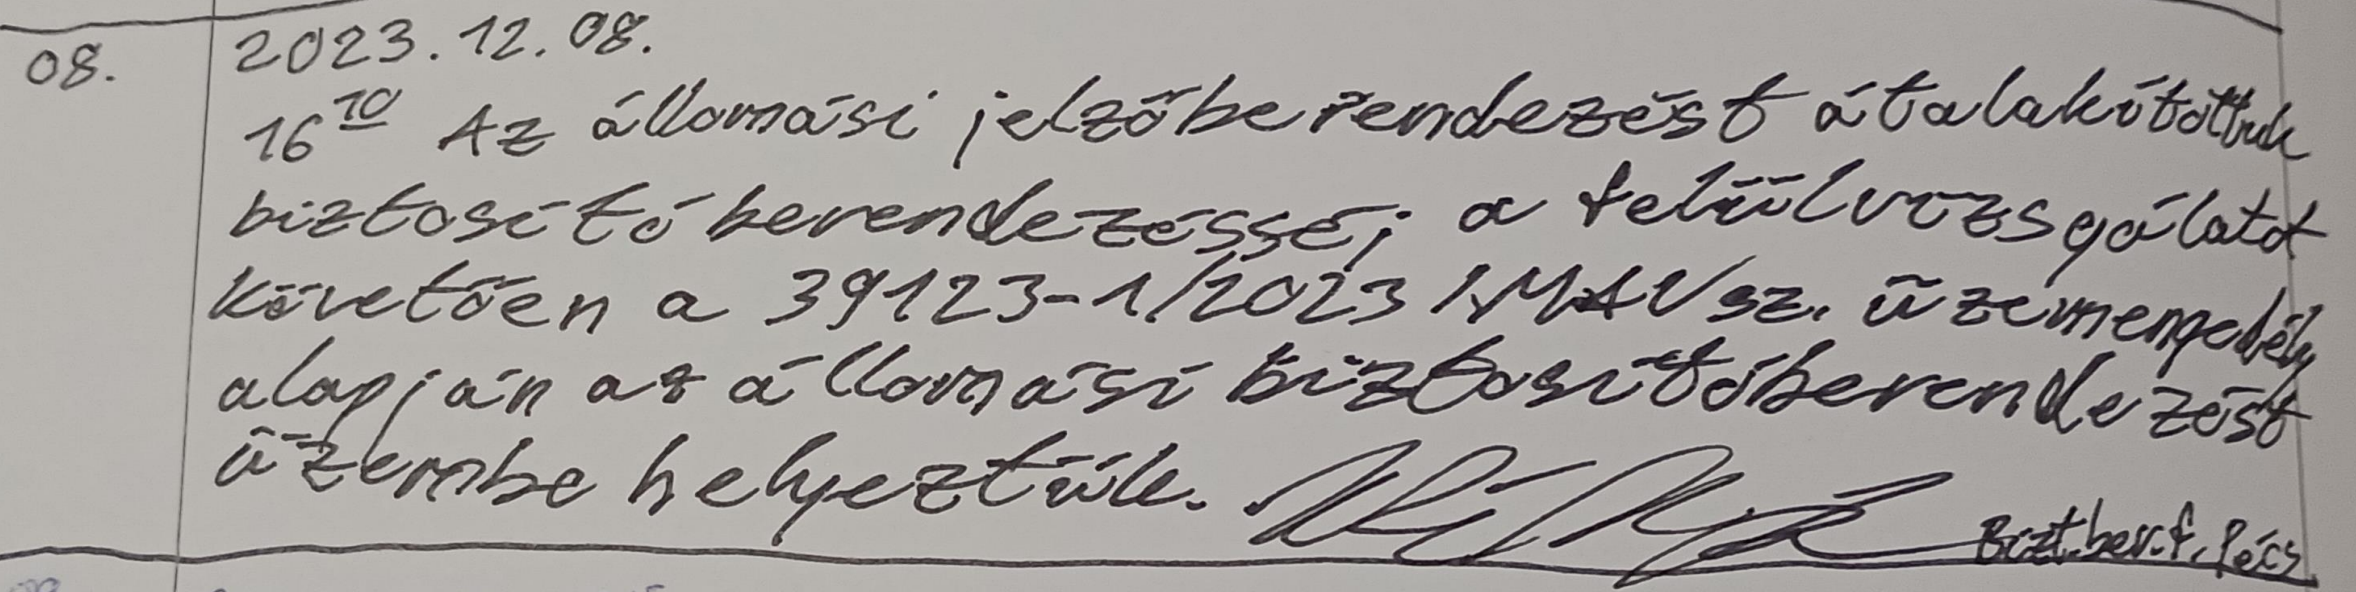 08.
2023.12.08.
16 10 Az állomási jelzőberendezést átalakítottuk
biztosítóberendezéssé; a felülvizsgálatot
követően a 39123-1/2023/MÁV sz. üzemengedély
alapján az állomási biztosítóberendezést
üzembe helyeztük.
Bizt.ber.f. Pécs